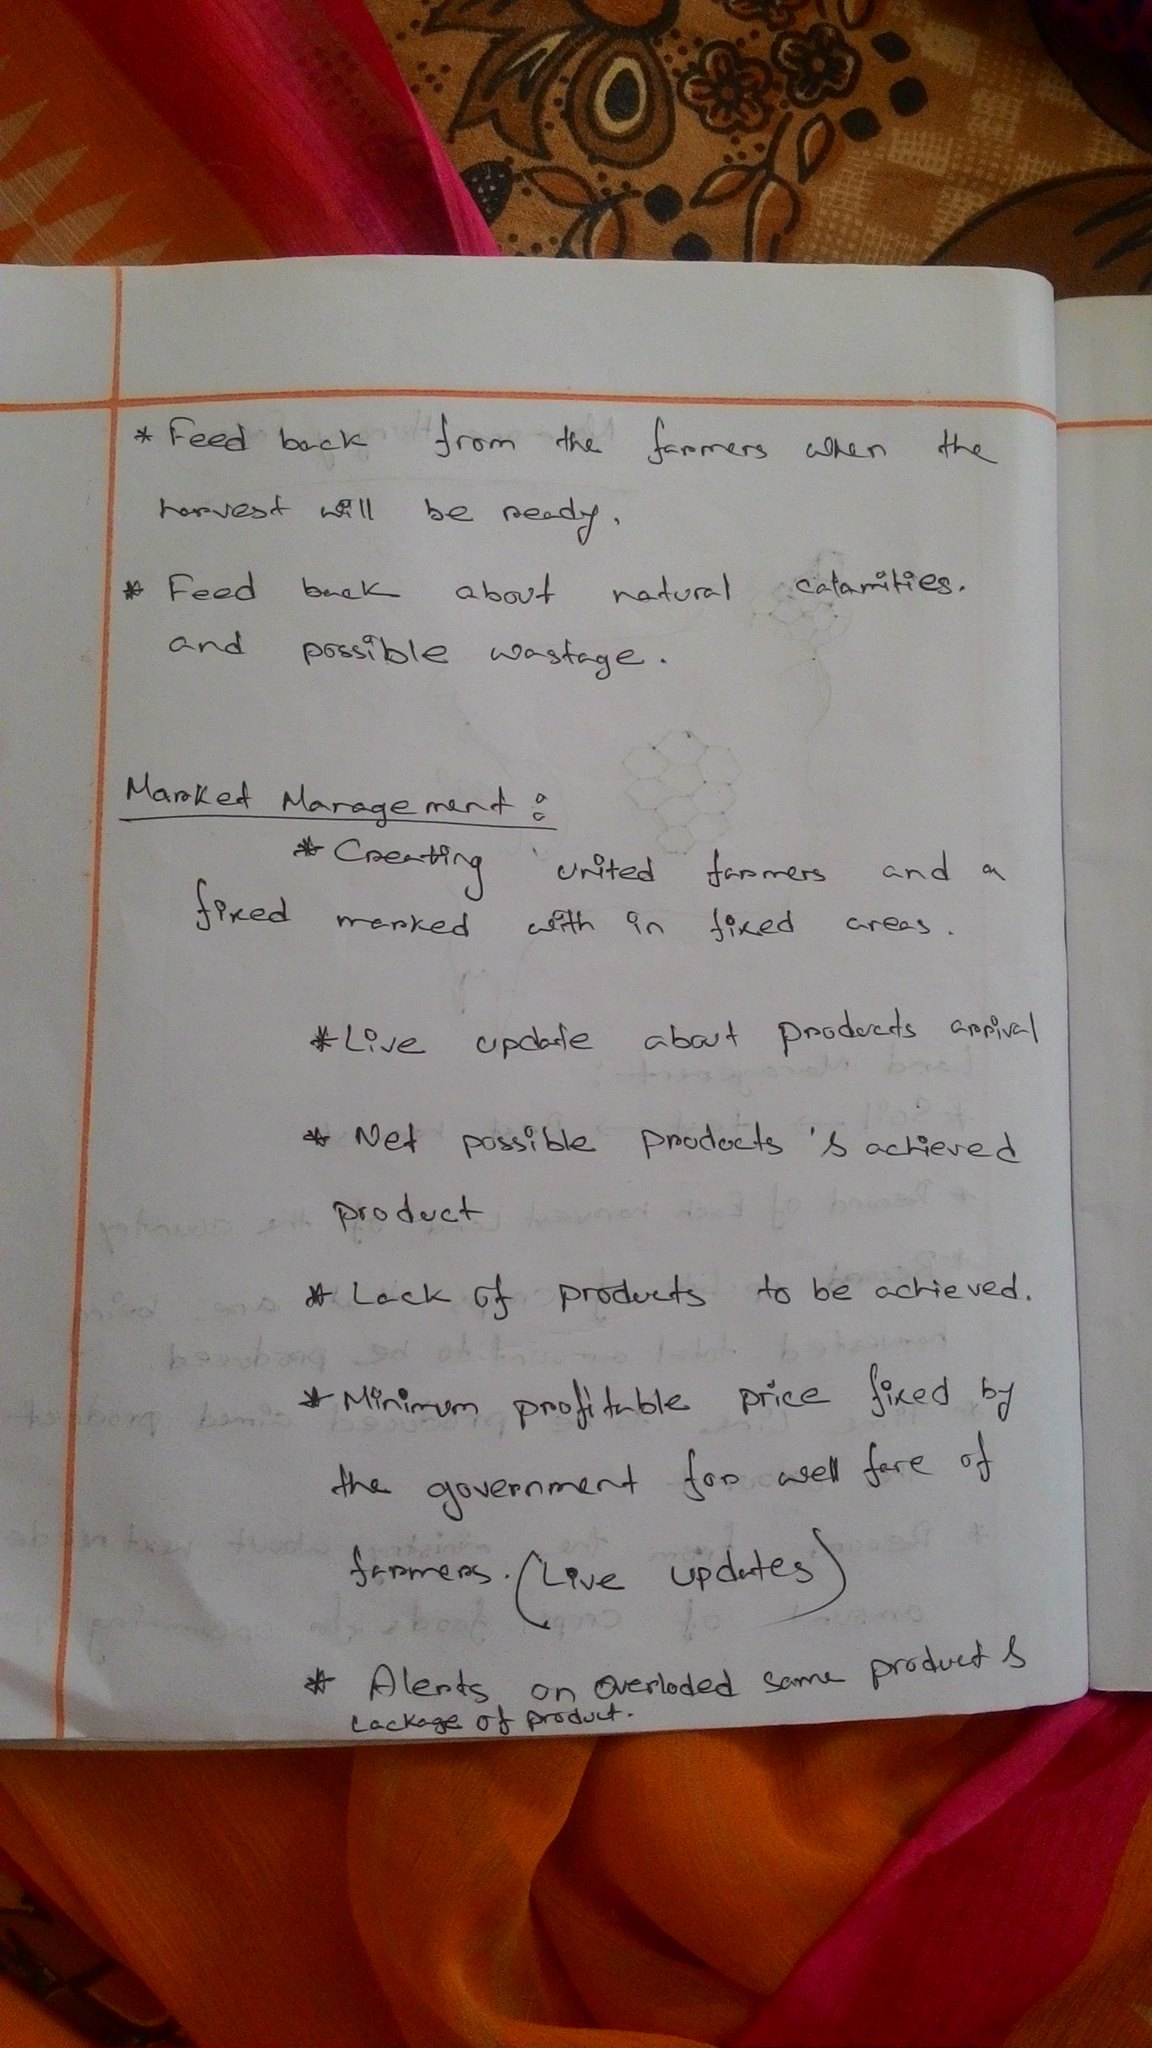 * Feed back from the farmers when the
harvest will be ready.
* Feed back about natural calamities.
and possible wastage.
Market Management :
* Creating united farmers and a
fixed marked with in fixed areas.
* Live update about products arrival
* Net possible products & achieved
product
* Lack of products to be achieved.
* Minimum profitable price fixed by
the government for well fare of
farmers. (Live updates)
* Alerts on overloded same product &
Lackage of product.